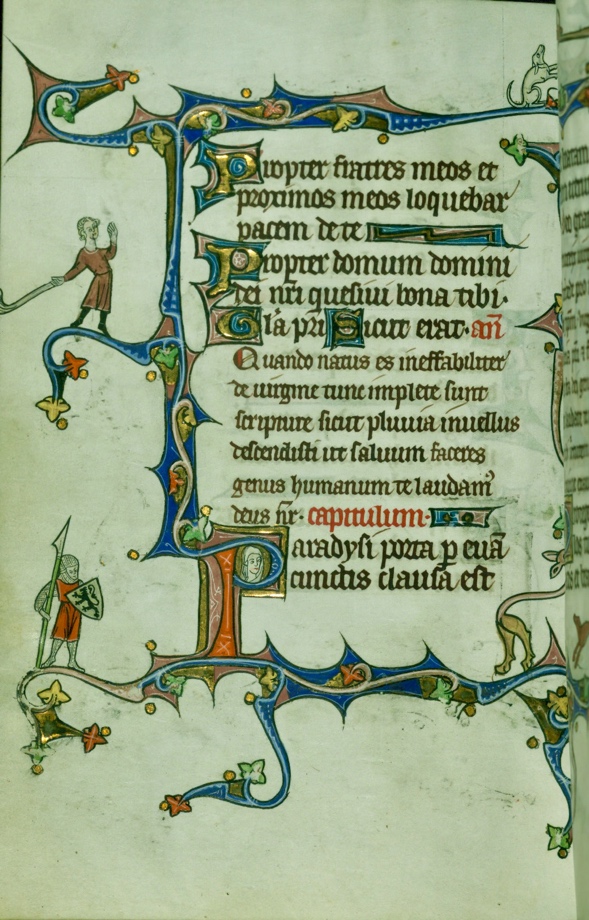 Propter fratres meos et
proximos meos loquebar
pacem de te
Propter domum domini
dei nr̄i quesiui bona tibi.
Gl̄a pr̄i Sicut erat. an̄
Quando natus es ineffabiliter
de uirgine tunc implete sunt
scripture sicut pluuia in uellus
descendisti ut saluum faceres
genus humanum te laudam᷒
deus nr̄. capitulum.
Paradysi porta p̲ euā
cunctis clausa est